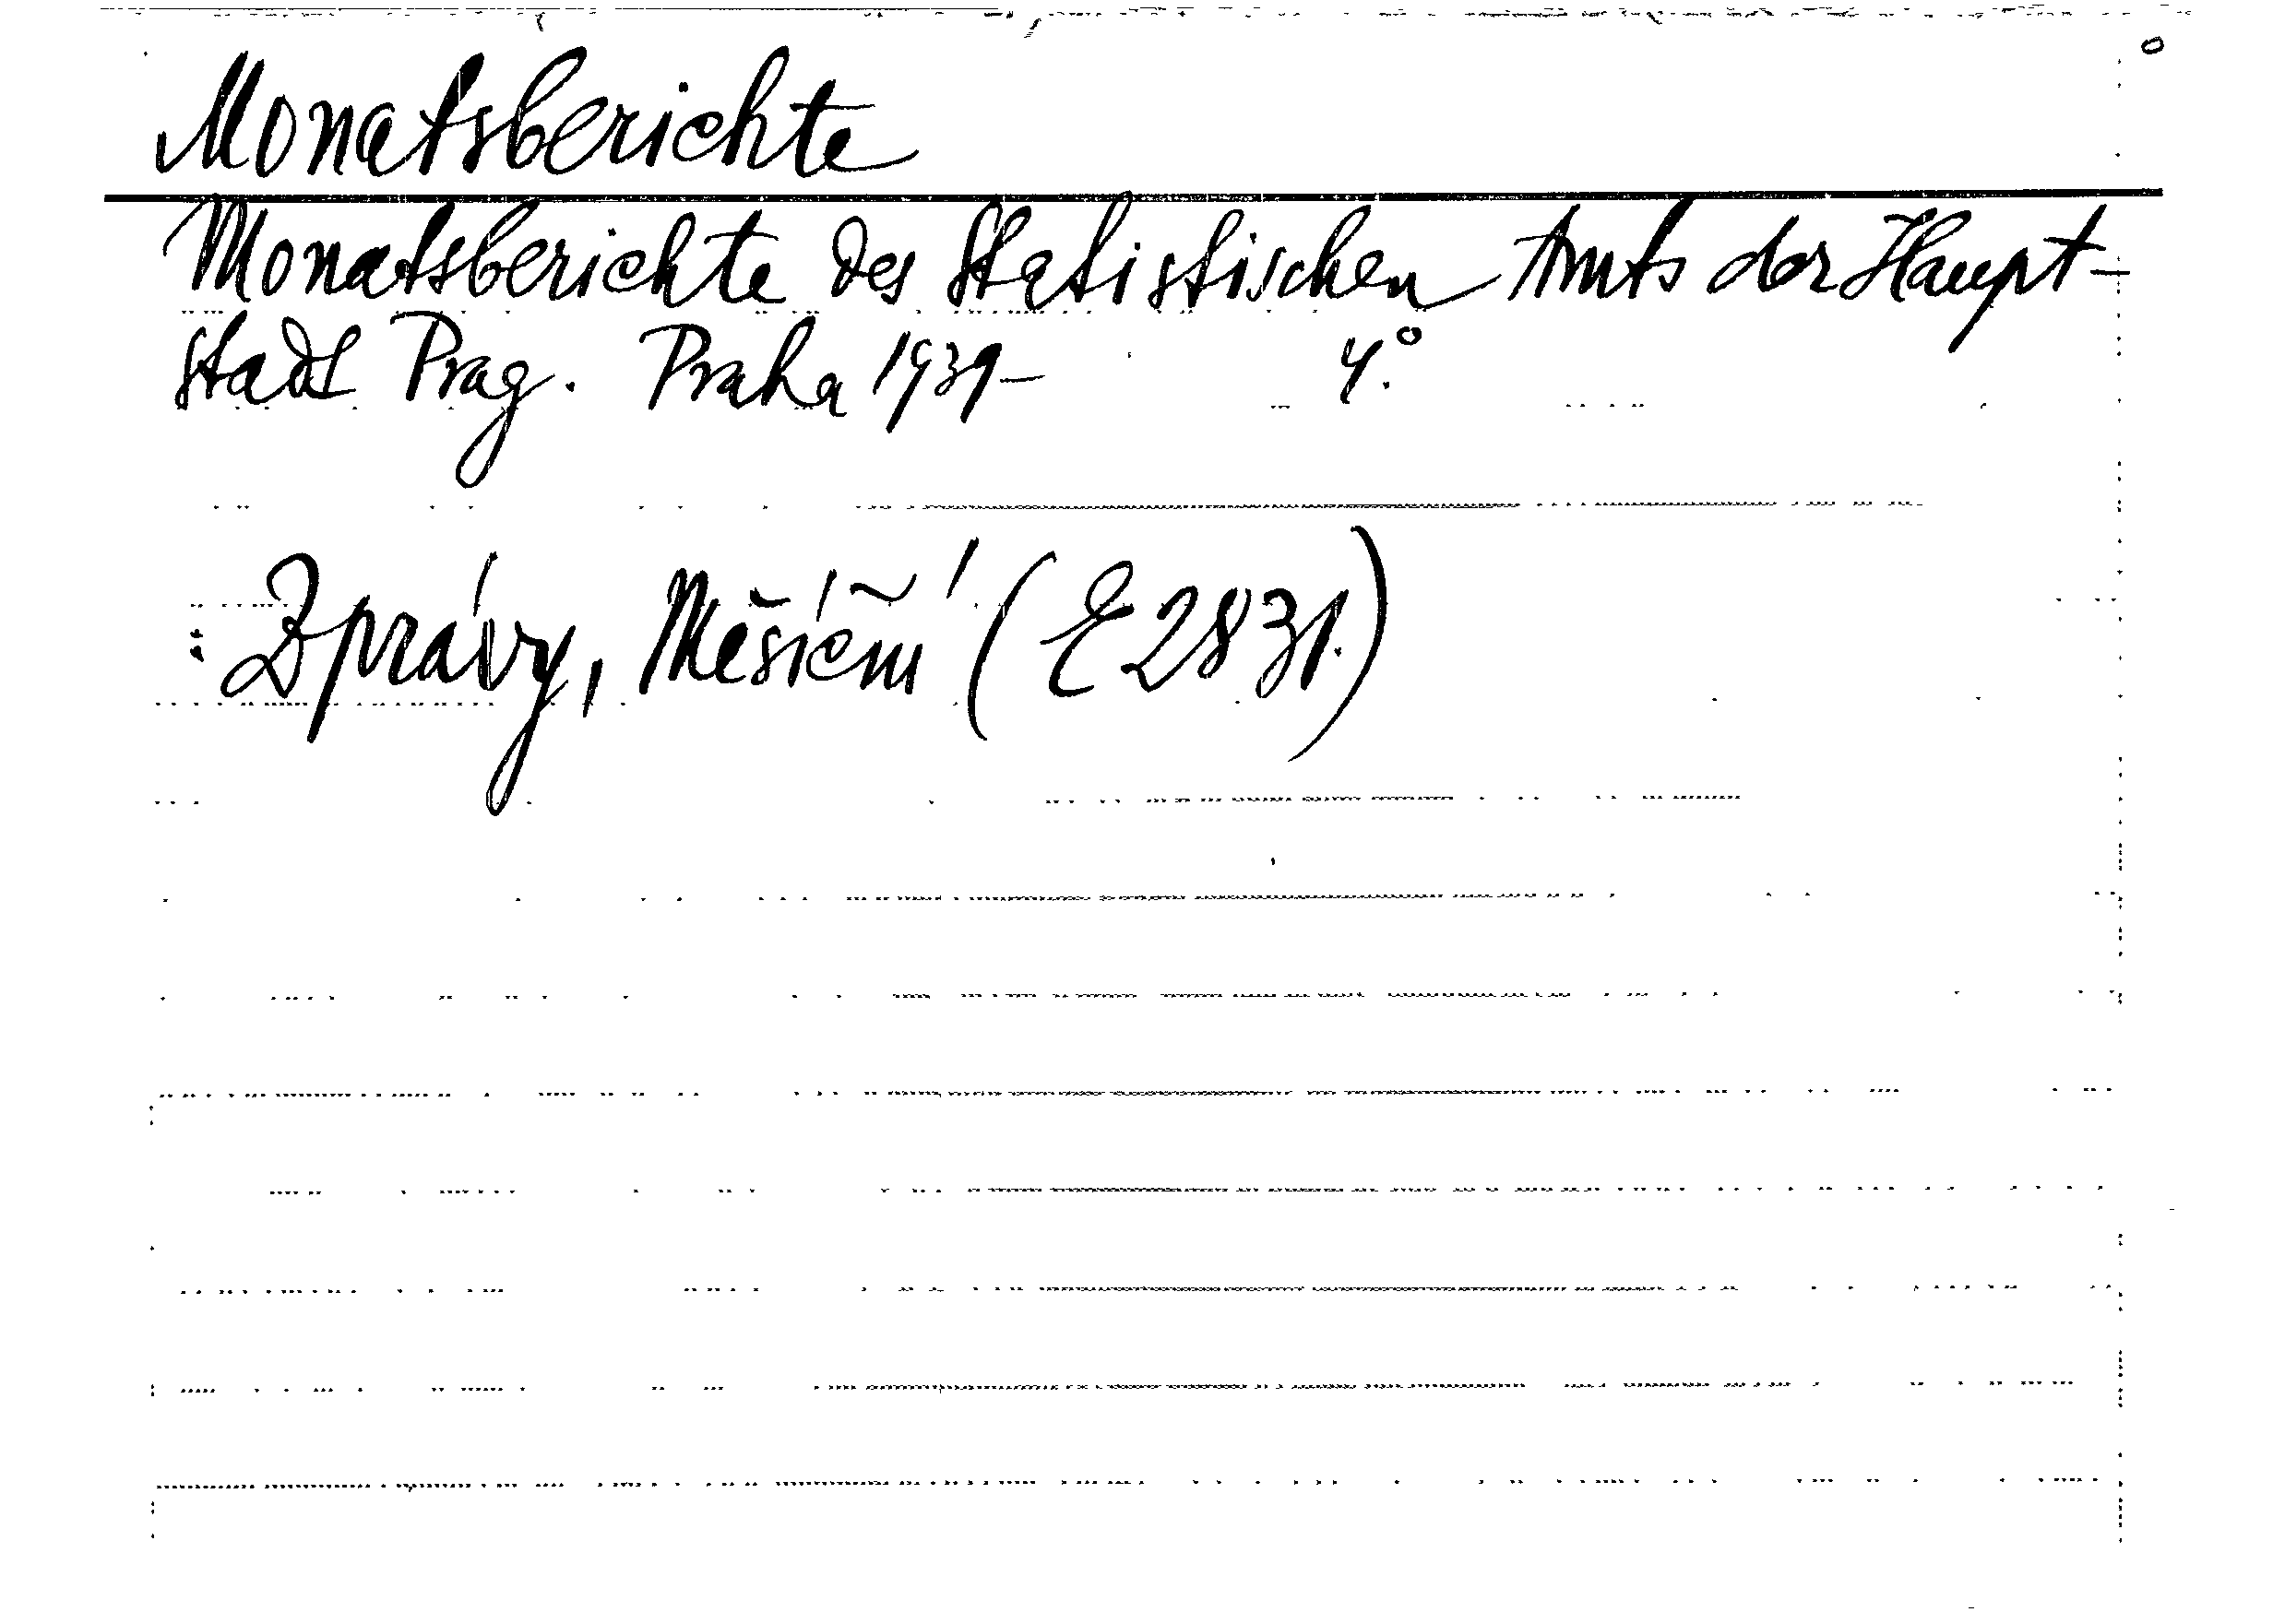 Monatsberichte
Monatsberichte des Statistischen Amts der Haupt-
stadt Prag. Praha 1939- 4.°
: Zprávy, Měsíční (E 2831.)